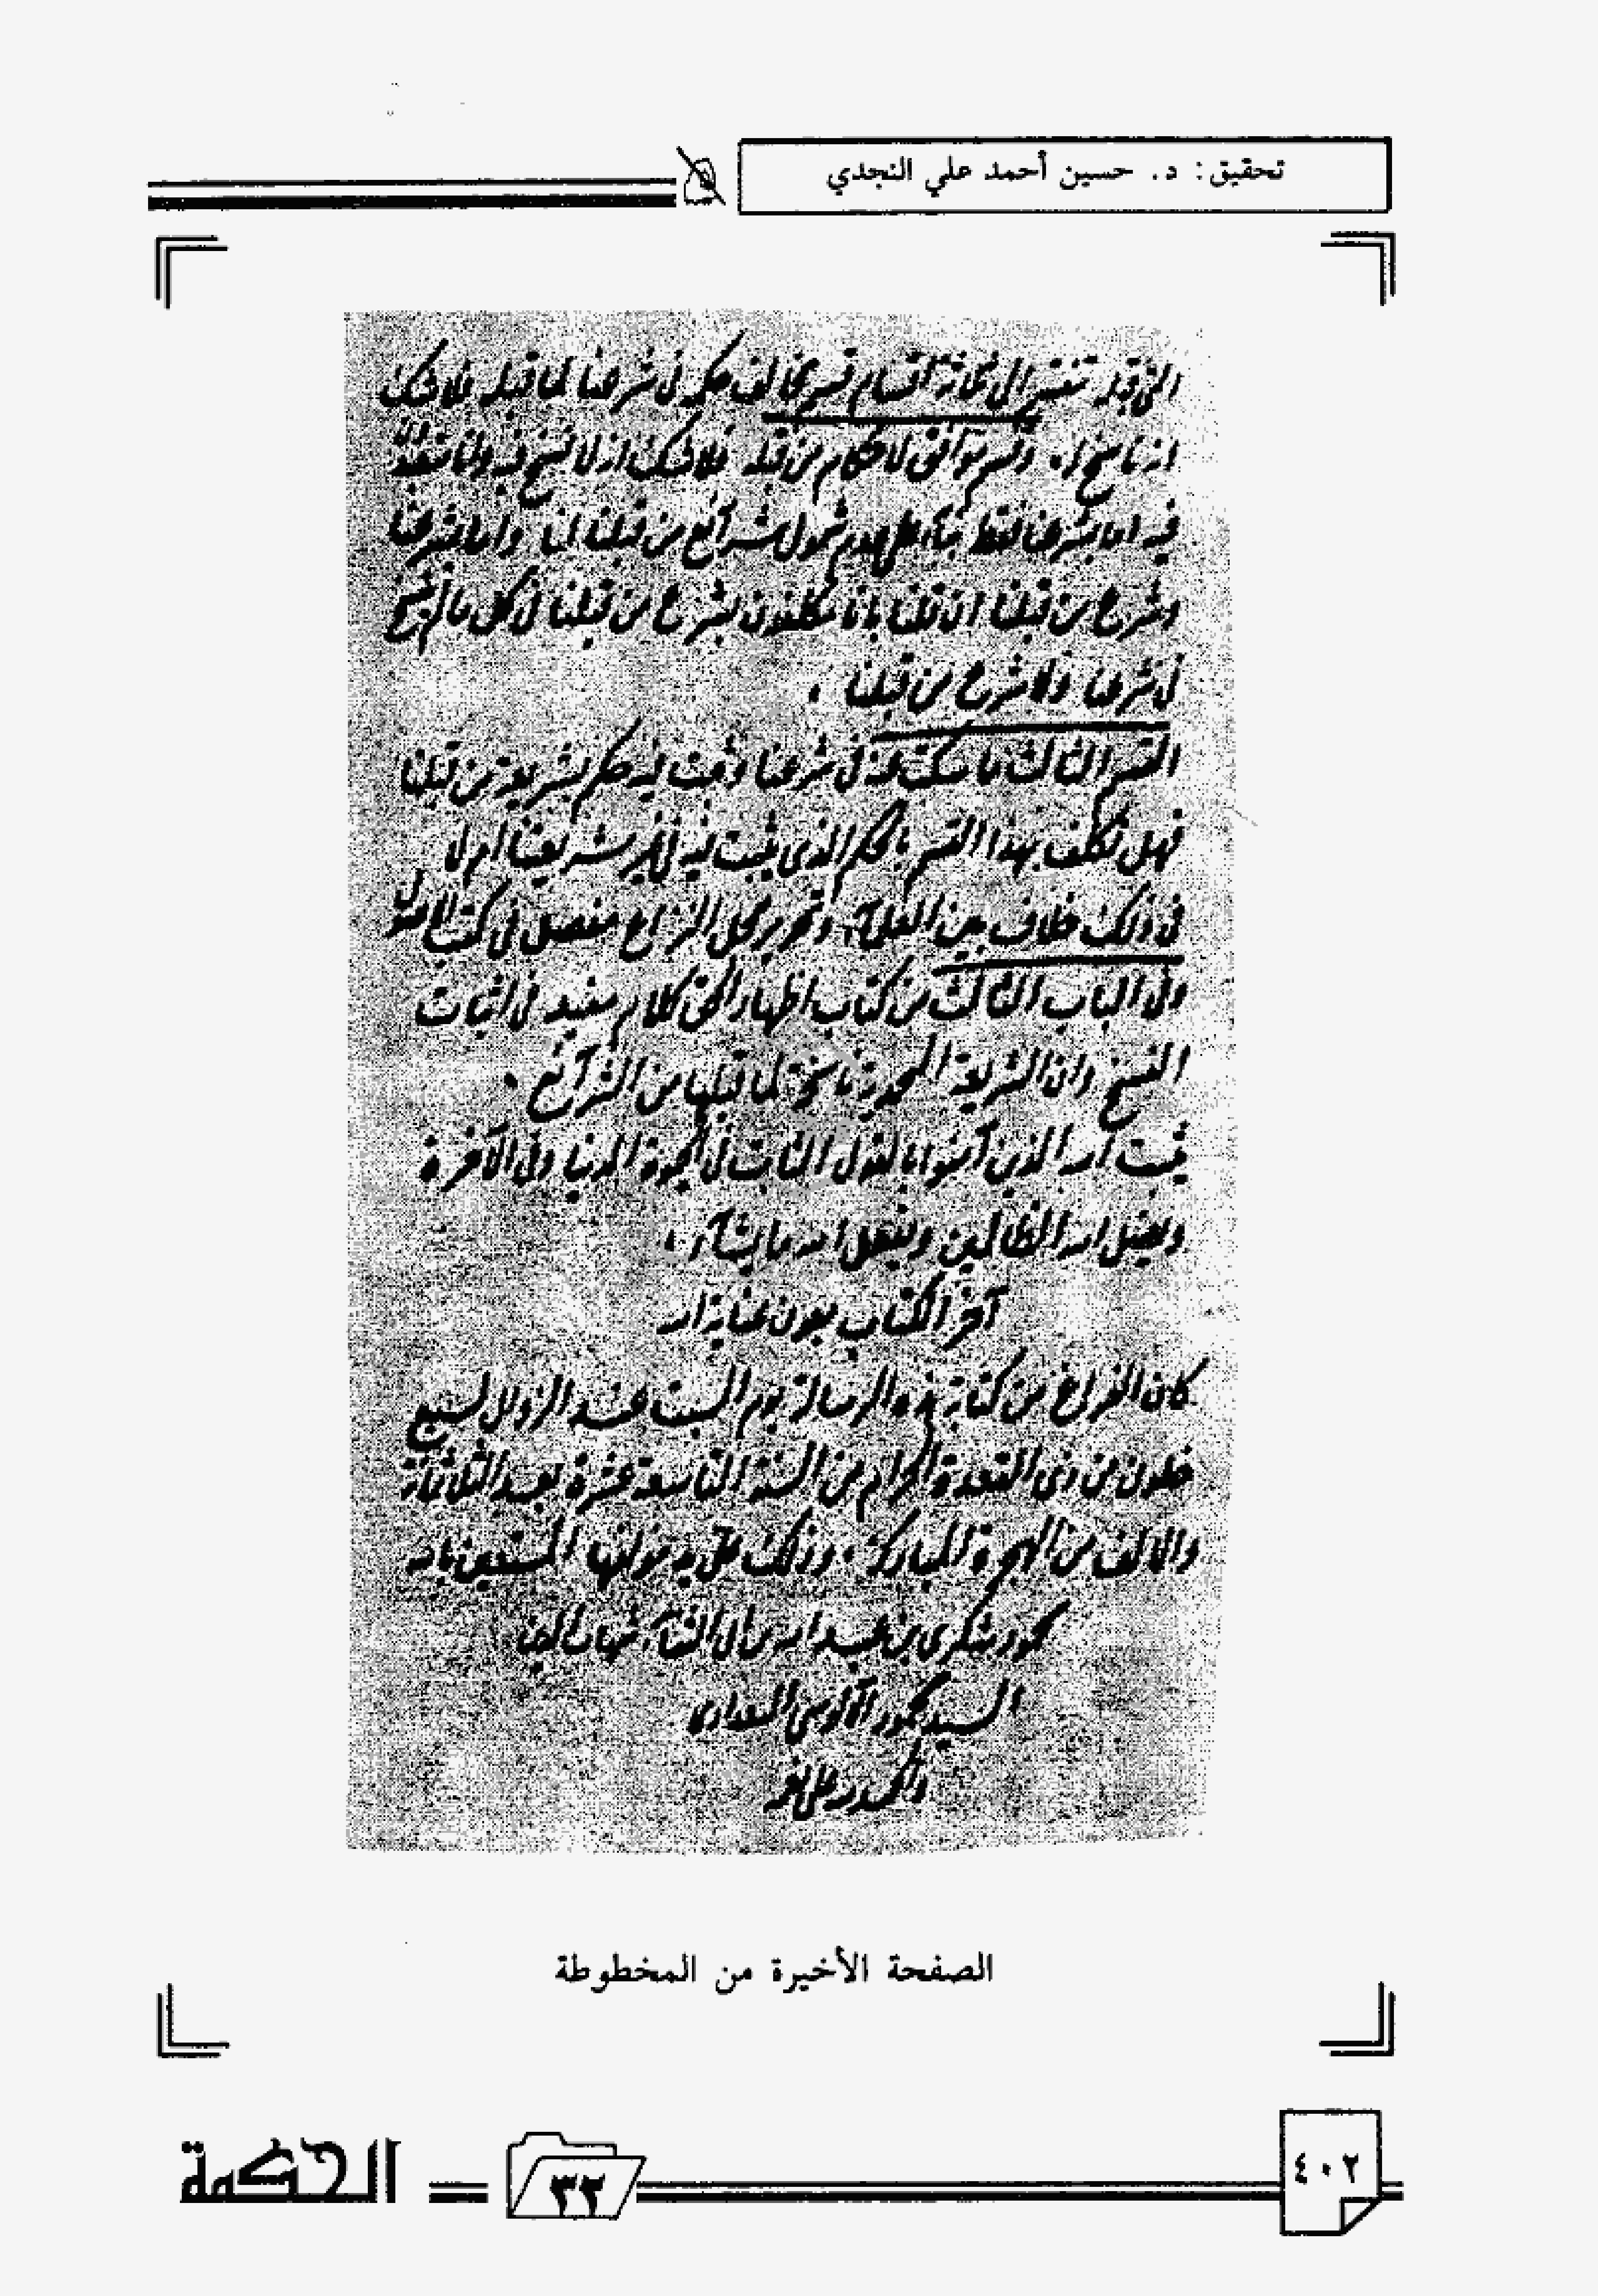 تحقيق: د. حسين أحمد علي النجدي
التي قبله تنقسم إلى ثلاثة أقسام قسم يخالف حكمه في شرعنا لما قبله فلا شك
انه ناسخ له وقسم موافق لاحكام من قبله فلا شك انه لا نسخ فيه وانا متعبد
فيه اما بشرعنا فقط بناء على عدم شمول شرائع من قبلنا لنا واما بشرعنا
وشرع من قبلنا ان قلنا بانا مكلفون بشرع من قبلنا في كل ما لم ينسخ
في شرعنا ولا شرع من قبلنا .
القسم الثالث ما سكت عنه في شرعنا وثبت له حكم بشريعة من قبلنا
فهل نكلف بهذا القسم بالحكم الذي يثبت له في غير شريعتنا أم لا
في ذلك خلاف بين العلمآء وتحرير محل النزاع مفصل في كتب الاصول
وفي الباب الثالث من كتاب اظهار الحق كلام مفيد في اثبات
النسخ وان الشريعة المحمدية ناسخة لما قبلها من الشرآئع .
يثبت الله الذين آمنوا بالقول الثابت في الحيوة الدنيا وفي الآخرة
ويضل الله الظالمين ويفعل الله ما يشآء .
آخر الكتاب بعون عناية الله
كان الفراغ من كتابة هذه الرسالة يوم السبت عند الزوال لسبع
خلون من ذي القعدة الحرام من السنة التاسعة عشرة بعد الثلاثمائة
والالف من الهجرة المباركة . وذلك على يد مؤلفها المستعين بالله
محمود شكري بن عبد الله بن ابي الثنآء شهاب الدين
السيد محمود الآلوسي البغدادي
والحمد لله على نعمه
الصفحة الأخيرة من المخطوطة
٤٠٢
٣٢
الحكمة